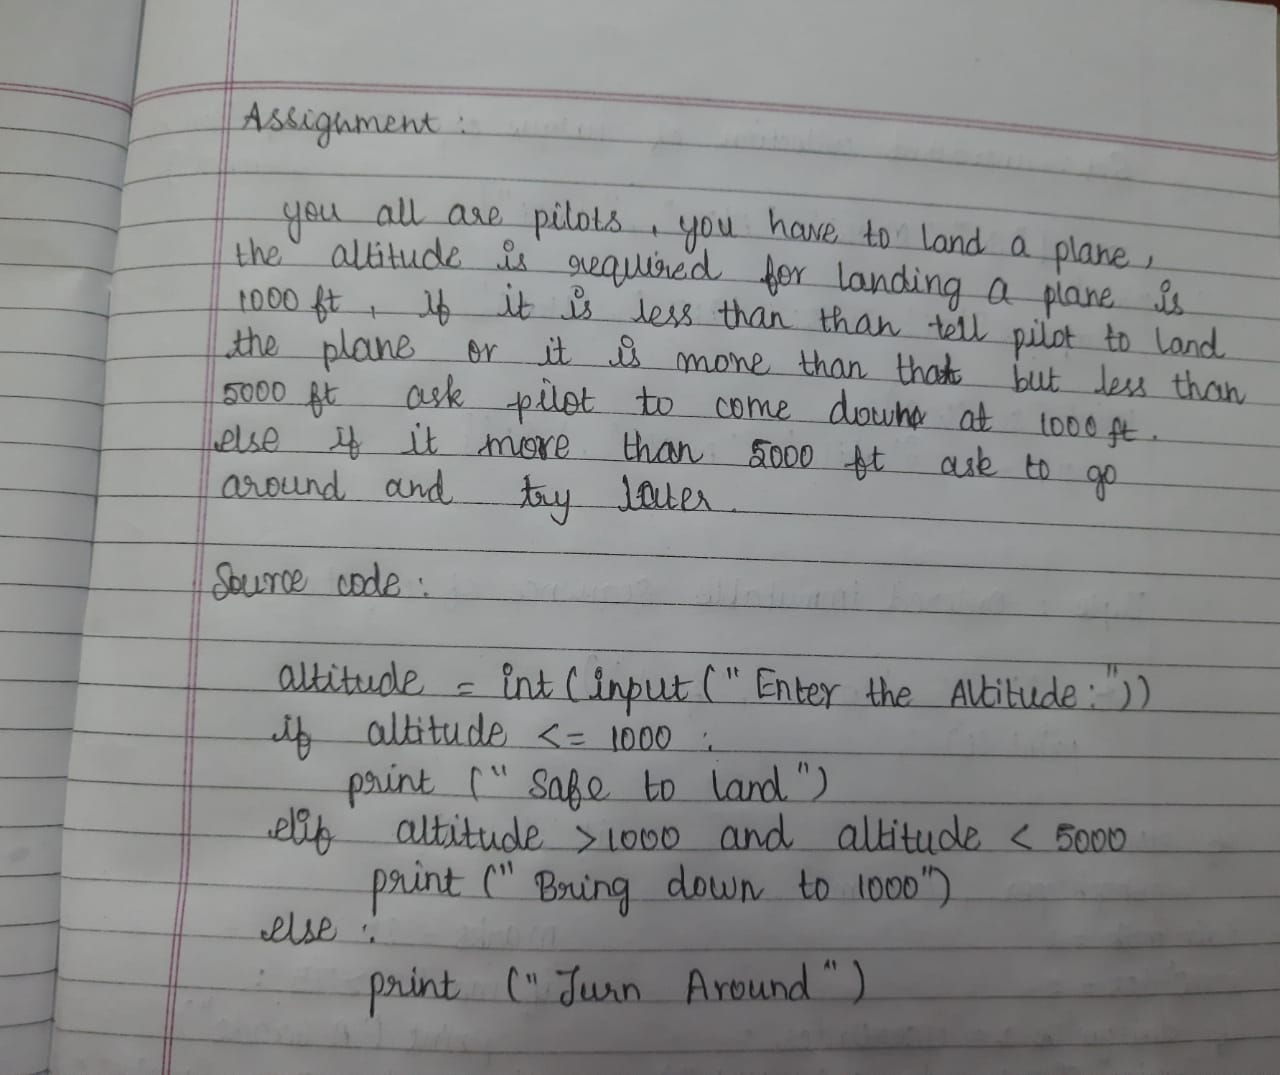 Assignment :
you all are pilots, you have to land a plane,
the altitude is required for landing a plane is
1000 ft, If it is less than than tell pilot to land
the plane or it is more than that but less than
5000 ft ask pilot to come down at 1000 ft.
else if it more than 5000 ft ask to go
around and try later.
Source code :
altitude = int(input("Enter the Altitude:"))
if altitude <= 1000 :
print ("Safe to land")
elif altitude >1000 and altitude < 5000
print ("Bring down to 1000")
else :
print ("Turn Around")